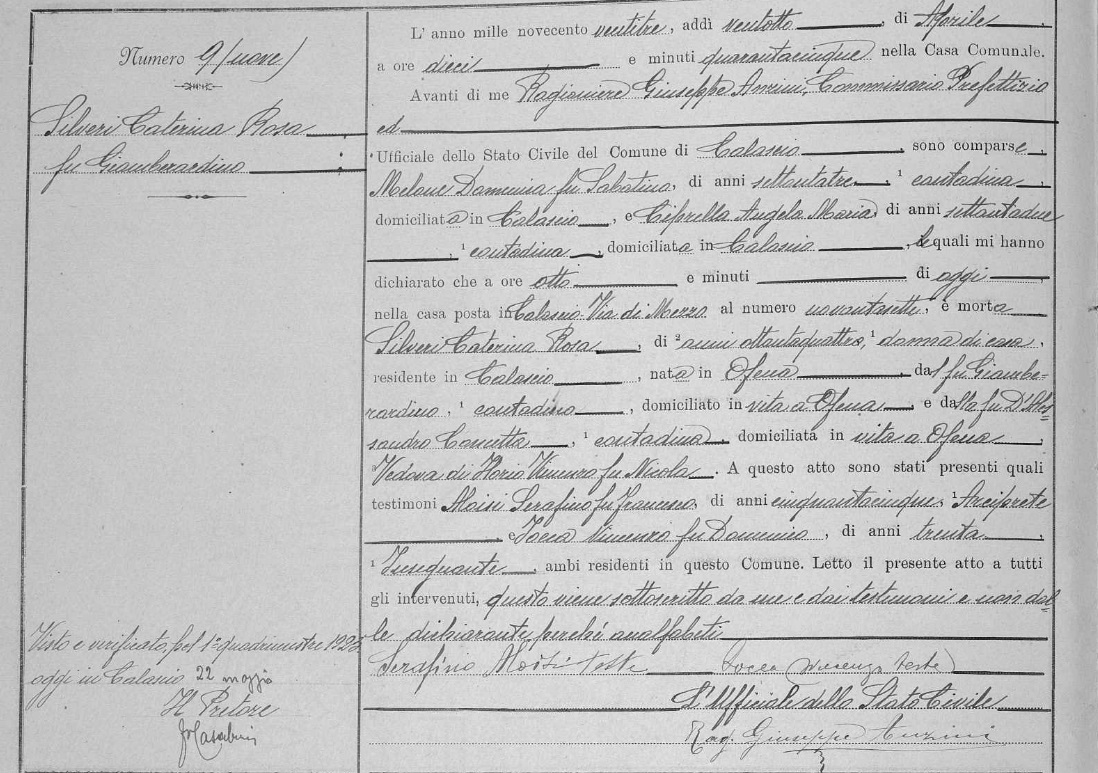 Numero 9 (nove)
Silveri Caterina Rosa
fu Giamberardino
L' anno mille novecento ventitre, addì ventotto, di Aprile,
a ore dieci e minuti quarantacinque nella Casa Comunale.
Avanti di me Ragioniere Giuseppe Anzini, Commissario Prefettizio
ed
Ufficiale dello Stato Civile del Comune di Calascio, sono comparse,
Melone Domenica fu Sabatino, di anni settantatre, ¹ contadina,
domiciliata in Calascio, e Ciprella Angela Maria, di anni settantadue
, ¹ contadina, domiciliata in Calascio, le quali mi hanno
dichiarato che a ore otto e minuti di oggi,
nella casa posta in Calascio Via di Mezzo al numero novantasette, è morta
Silveri Caterina Rosa, di ² anni ottantaquattro, ¹ donna di casa,
residente in Calascio, nata in Ofena, dal fu Giambe-
rardino, ¹ contadino, domiciliato in vita a Ofena, e dalla fu D'Ales-
sandro, ¹ contadina, domiciliata in vita a Ofena,
Vedova di Vincenzo fu Nicola. A questo atto sono stati presenti quali
testimoni Moisi Serafino fu Francesco, di anni cinquantacinque, ¹ Arciprete
e Iocca Vincenzo fu Domenico, di anni trenta,
¹ Insegnante, ambi residenti in questo Comune. Letto il presente atto a tutti
gli intervenuti, questo viene sottoscritto da me e dai testimoni e non dal-
le dichiaranti perché analfabeti
Serafino Moisi teste Iocca Vincenzo teste
L'Ufficiale dello Stato Civile
Rag. Giuseppe Anzini
Visto e verificato pel 1º quadrimestre 1923
oggi in Calascio 22 maggio
Il Pretore